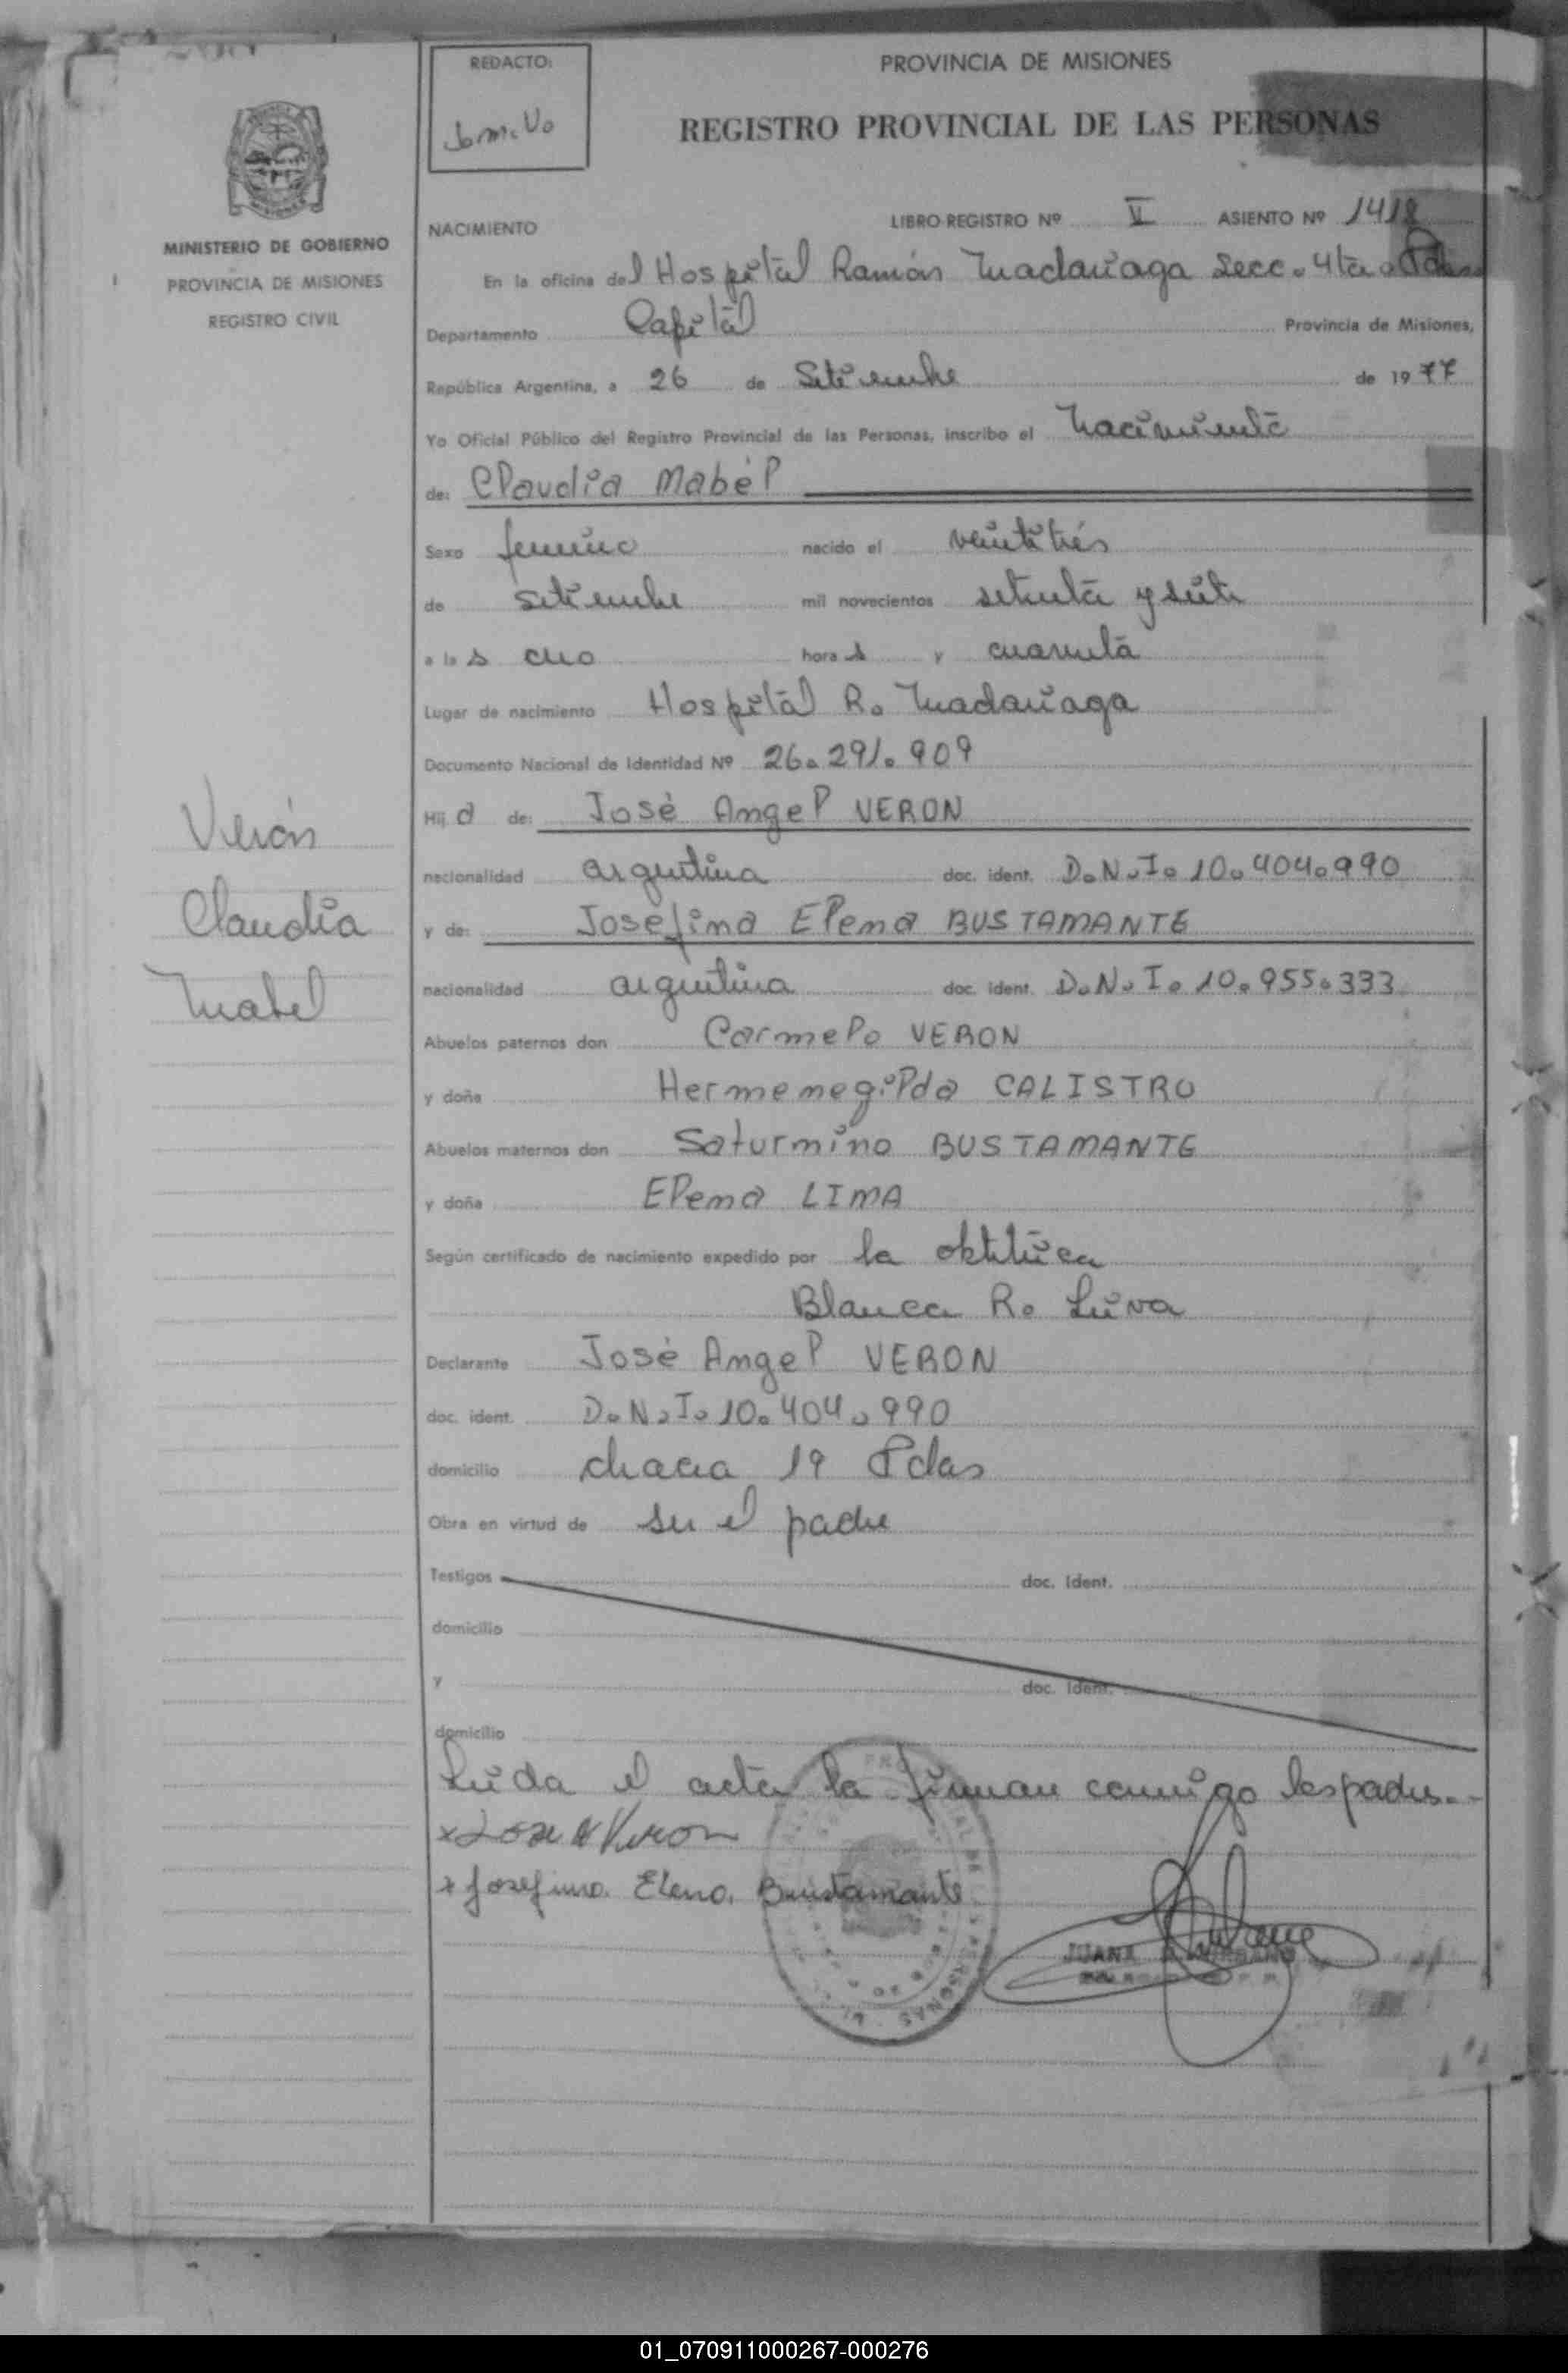 REDACTO:
PROVINCIA DE MISIONES
REGISTRO PROVINCIAL DE LAS PERSONAS
MINISTERIO DE GOBIERNO
PROVINCIA DE MISIONES
REGISTRO CIVIL
NACIMIENTO LIBRO REGISTRO Nº VI ASIENTO Nº 1418
En la oficina del Hospital Ramón Madariaga Secc. 4ta. Pdas
Departamento Capital Provincia de Misiones,
República Argentina, a 26 de Setiembre de 1977
Yo Oficial Público del Registro Provincial de las Personas, inscribo el Nacimiento
de: Claudia Mabél
Sexo femenino nacido el veintitrés
de setiembre mil novecientos setenta y siete
a las ocho horas y cuarenta
Lugar de nacimiento Hospital R. Madariaga
Documento Nacional de Identidad Nº 26.291.909
Hija de: José Angel VERON
nacionalidad argentina doc. ident. D.N.I. 10.404.990
y de: Josefina Elena BUSTAMANTE
nacionalidad argentina doc. ident. D.N.I. 10.955.333
Abuelos paternos don Carmelo VERON
y doña Hermenegilda CALISTRO
Abuelos maternos don Saturnino BUSTAMANTE
y doña Elena LIMA
Según certificado de nacimiento expedido por la obstétrica
Blanca R. Leiva
Declarante José Angel VERON
doc. ident. D.N.I. 10.404.990
domicilio chacra 19 Pdas
Obra en virtud de ser el padre
Testigos doc. Ident.
domicilio
y doc. Ident.
domicilio
Leída el acta la firman conmigo los padres.-
x José A Veron
x Josefina. Elena. Bustamante
JUANA
Verón
Claudia
Mabel
01_070911000267-000276